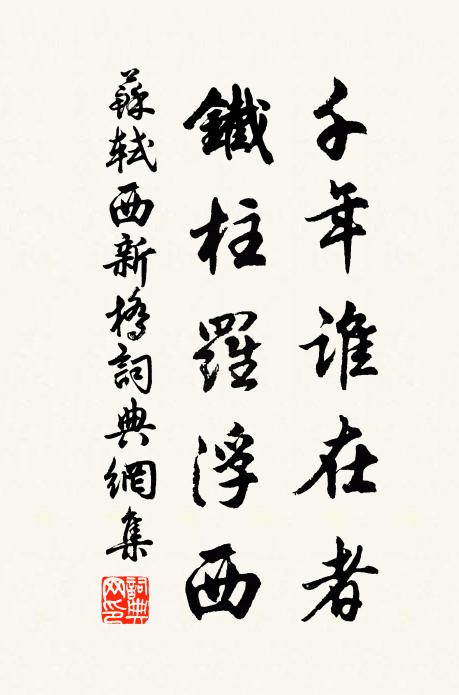 千年誰在者
鐵柱羅浮西
蘇軾西新橋詞典網集
詞典网印